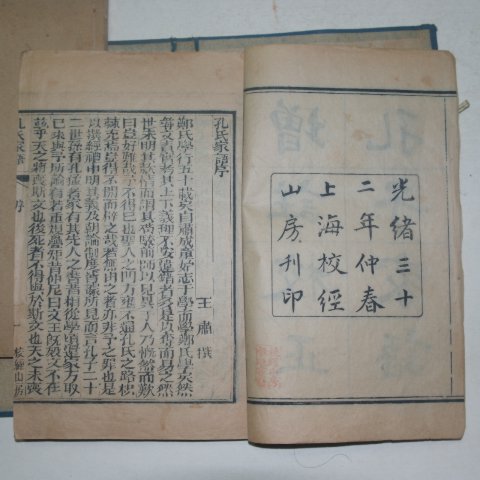 光緒三十
二年仲春
上海校經
山房刊印
孔氏家語序
王肅撰
鄭氏學行五十載矣自肅成童始志于學而學鄭氏學矣然
尋文責實考其上下義理不安違錯者多是以奪而易之然
世未明其款情而謂其苟駮前師以見異于人乃慨然而歎
曰豈好難哉予不得已也聖人之門方壅不通孔氏之路枳
棘充焉豈得不開而辟之哉若無由之者亦非予之罪也是
以撰經禮申明其義及朝論制度皆據所見而言孔子二十
二世孫有孔猛者家有其先人之書昔相從學頃還家方取
已來與予所論有若重規疊矩昔仲尼曰文王既歿文不在
茲乎天之將喪斯文也後死者不得與於斯文也天之未喪
孔氏家語 序 一 校經山房